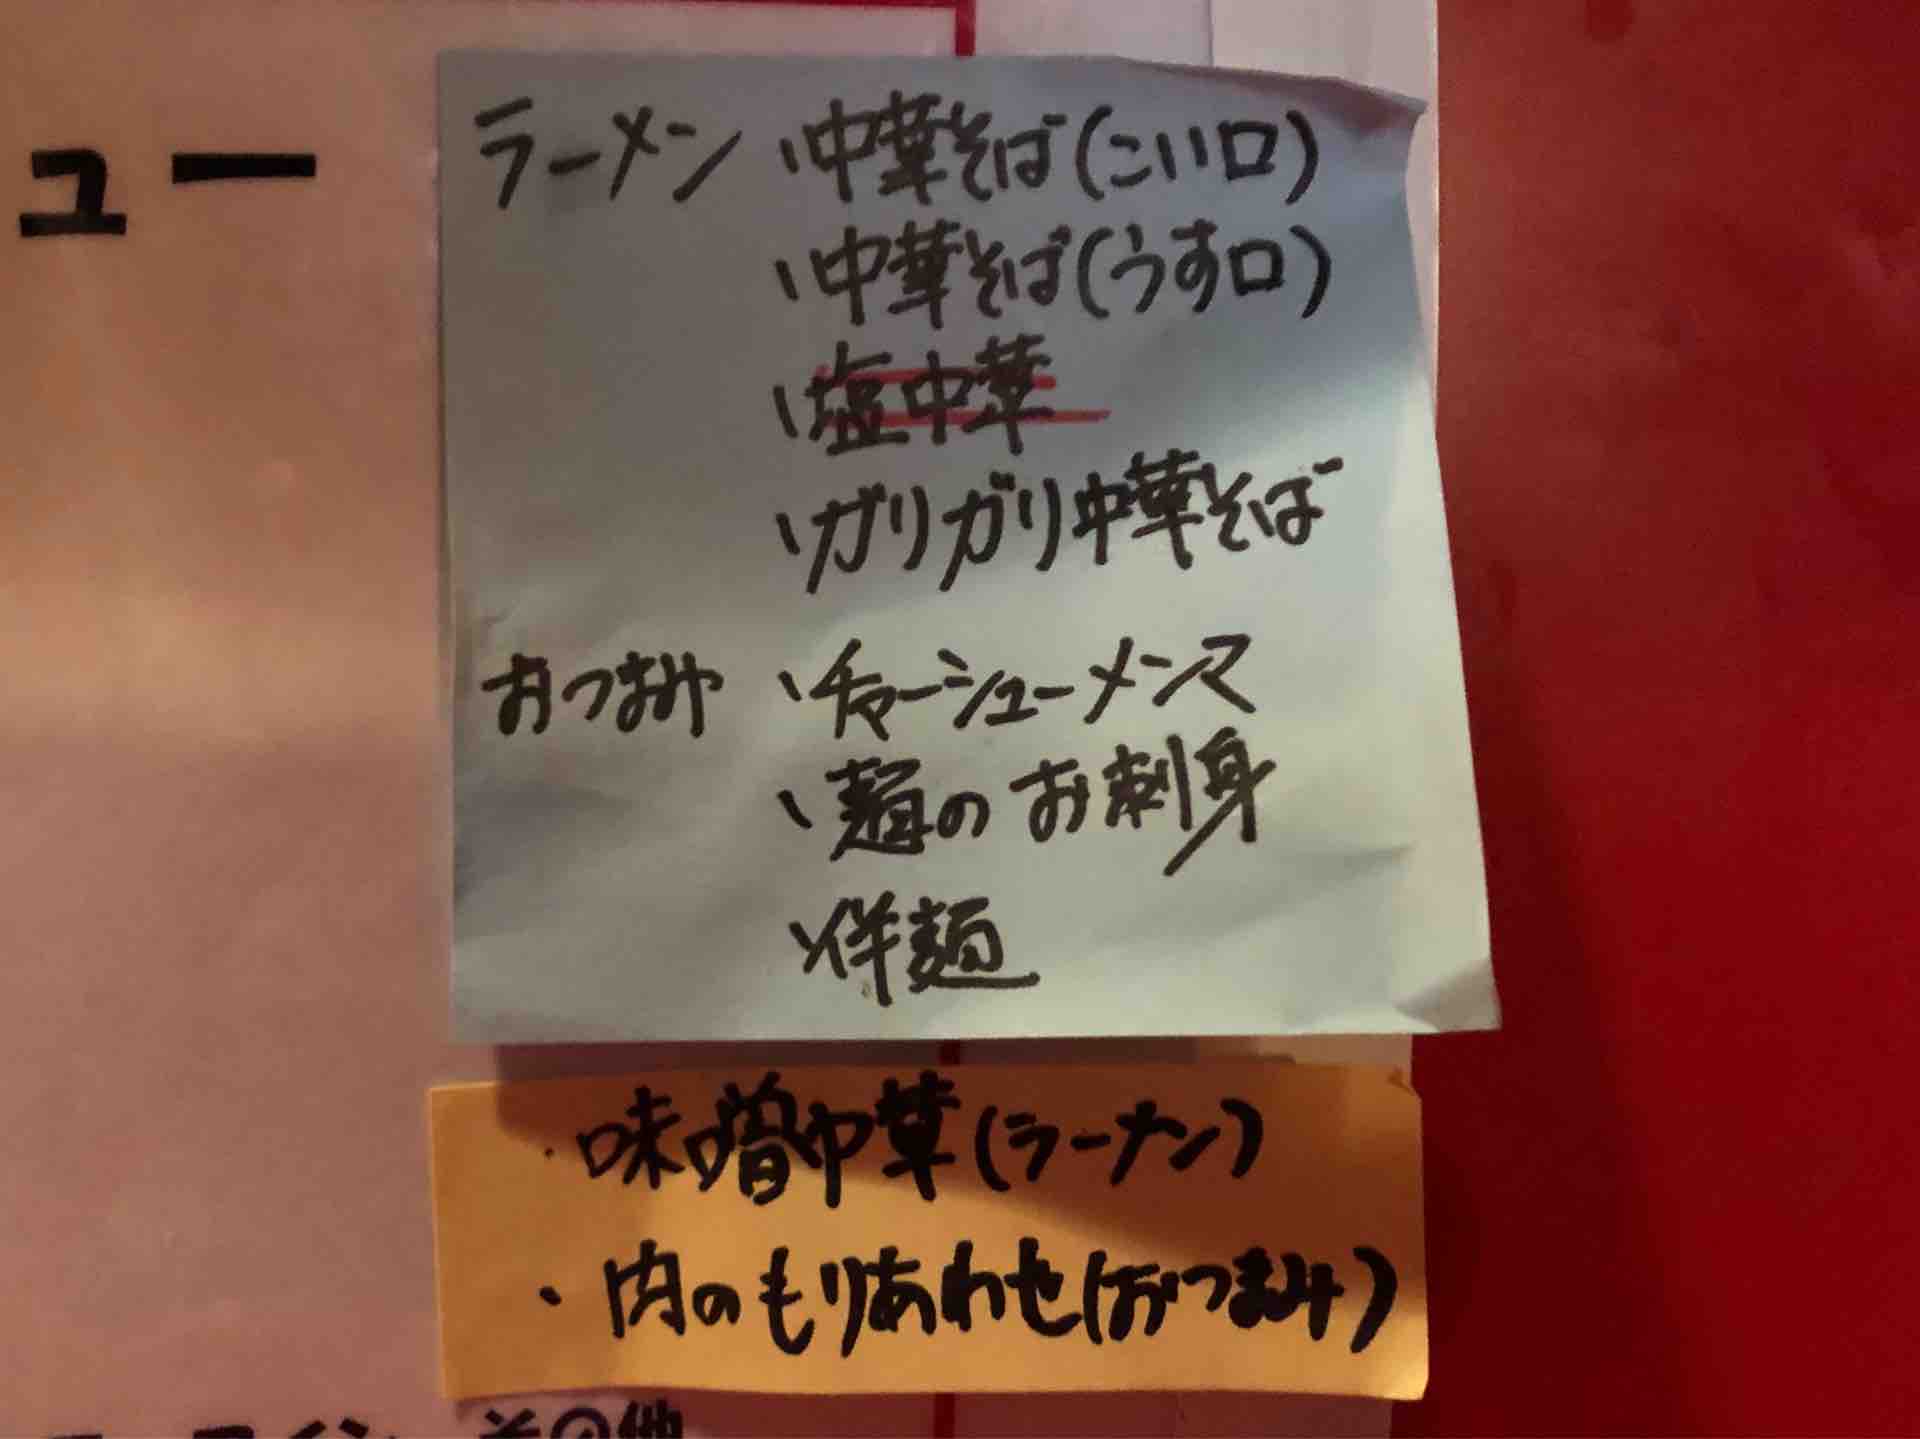 ュー
ラーメン ・中華そば(こい口)
・中華そば(うす口)
・塩中華
・ガリガリ中華そば
おつまみ ・チャーシューメンマ
・麺のお刺身
・伴麺
・味噌中華(ラーメン)
・肉のもりあわせ(おつまみ)
その他